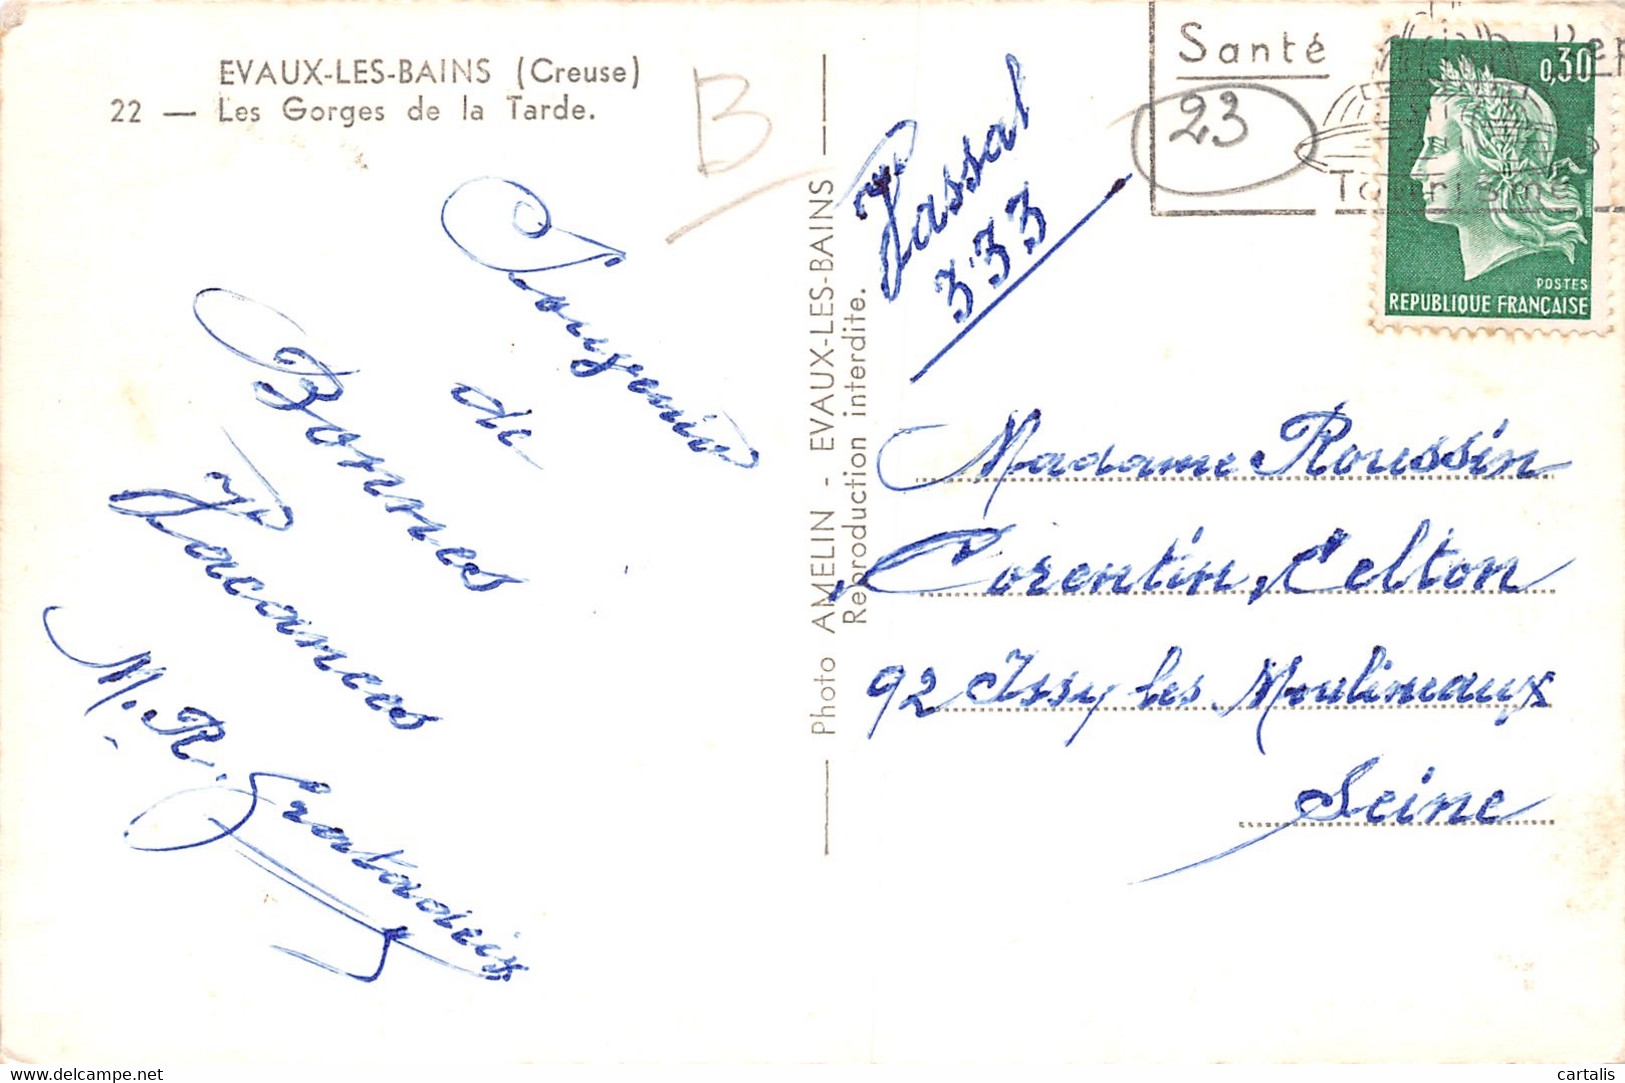 EVAUX-LES-BAINS (Creuse)
22 — Les Gorges de la Tarde.
B
Souvenir
de
Bonnes
Vacances
M. R.
Photo AMELIN - EVAUX-LES-BAINS
Reproduction interdite.
333
Santé
23
Tourisme
0,30
POSTES
REPUBLIQUE FRANÇAISE
Madame Roussin
Corentin, Celton
92 Issy les Moulineaux
Seine
delcampe.net
cartalis